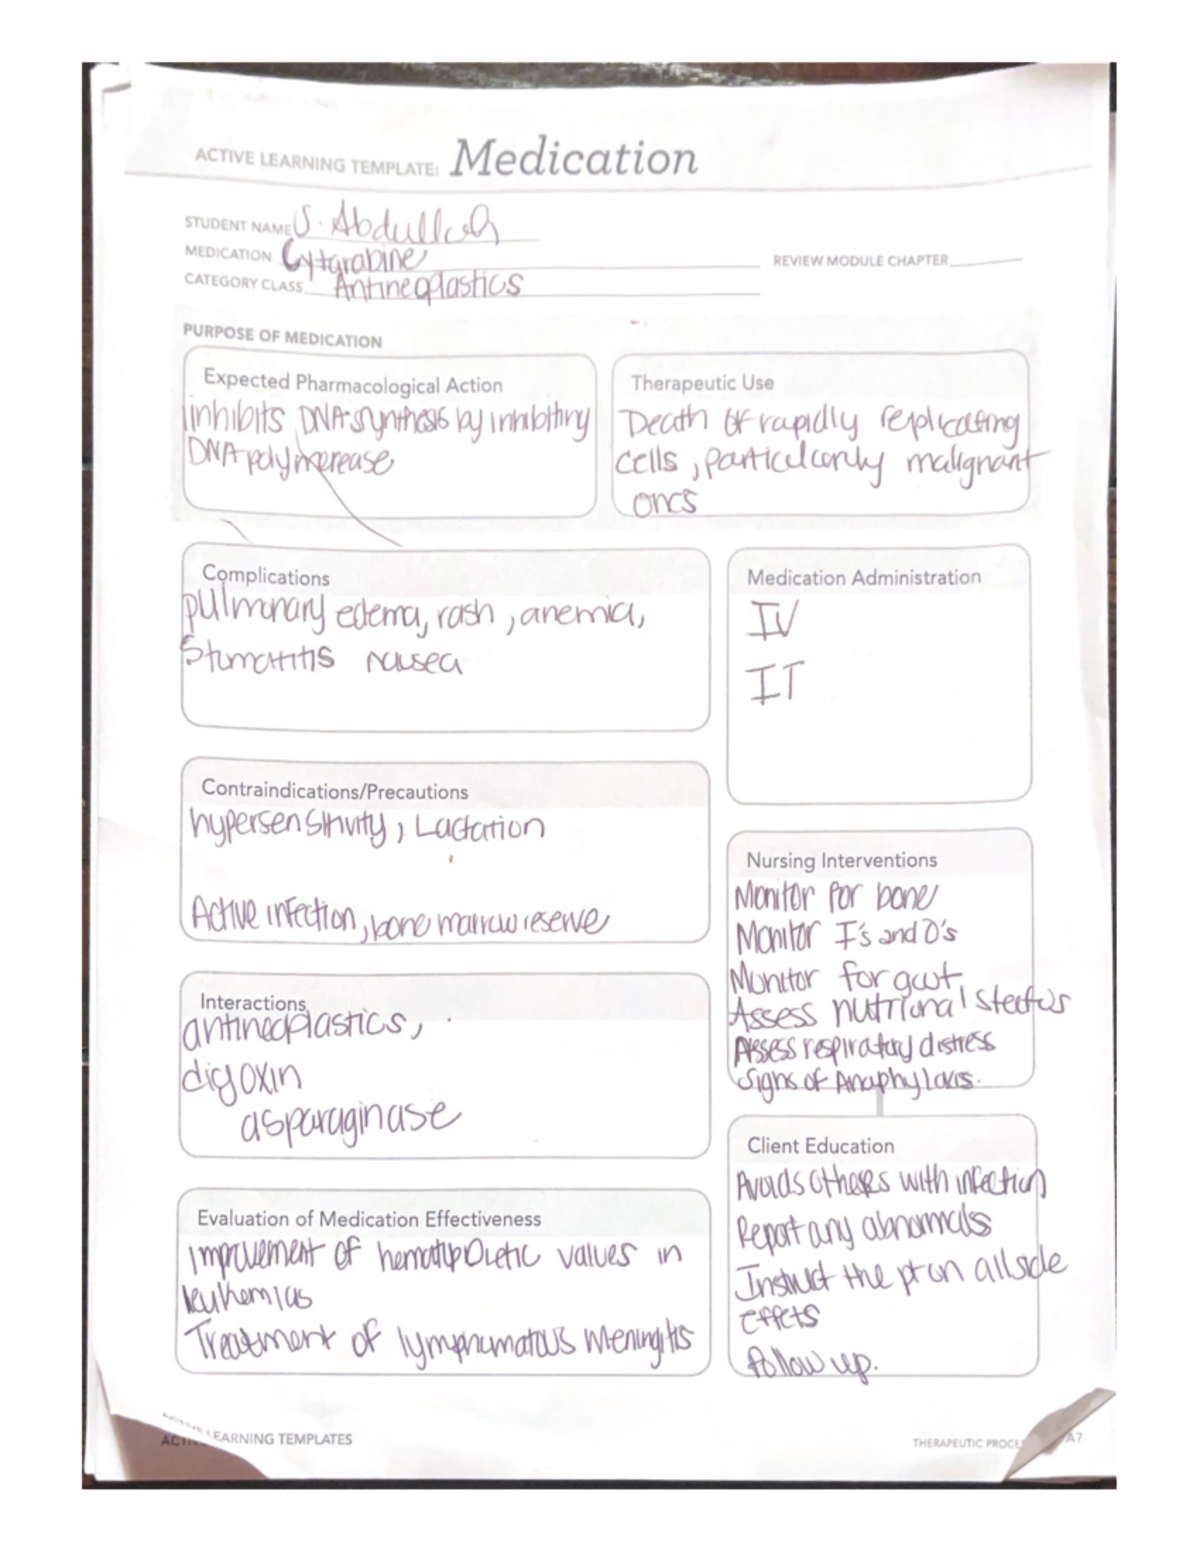 ACTIVE LEARNING TEMPLATE: Medication
STUDENT NAME S. Abdullah
MEDICATION Cytarabine
REVIEW MODULE CHAPTER
CATEGORY CLASS Antineoplastics
PURPOSE OF MEDICATION
Expected Pharmacological Action
inhibits DNA synthesis by inhibiting
DNA polymerease
Therapeutic Use
Death of rapidly replicating
cells, particularly malignant
ones
Complications
pulmonary edema, rash, anemia,
Stomatitis nausea
Medication Administration
IV
IT
Contraindications/Precautions
hypersensitivity, Lactation
Active infection, bone marrow reserve
Nursing Interventions
Monitor for bone
Monitor I's and O's
Monitor for gout
Assess nutrional status
Assess respiratory distress
signs of Anaphylaxis.
Interactions
antineoplastics,
digoxin
asparaginase
Client Education
Avoids others with infection
Report any abnormals
Instruct the pt on all side
effets
Follow up.
Evaluation of Medication Effectiveness
Improvement of hematopoietic values in
leukemias
Treatment of lymphomatous meningitis
LEARNING TEMPLATES
THERAPEUTIC
A7